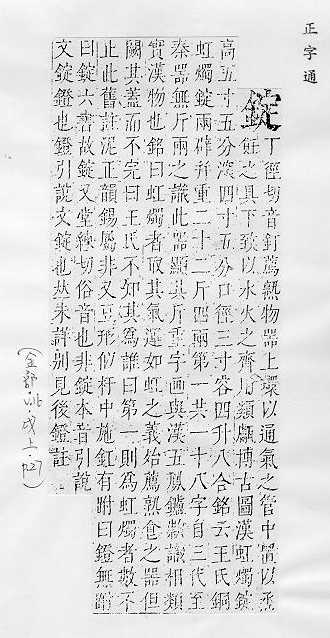 正字通
錠
丁徑切音釘薦熟物器上環以通氣之管中置以烝
飪之具下致以水火之齊用類甗博古圖漢虹燭錠
高五寸五分深四寸五分口徑三寸容四升八合銘云王氏銅
虹燭錠兩辟幷重二十二斤四兩第一共一十八字自三代至
秦器無斤兩之識此器顯其斤重字画與漢五鳳鑪款識相類
實漢物也銘曰虹燭者取其氣運如虹之義殆薦熟食之器但
闕其蓋而不完曰王氏不知其為誰曰第一則為虹燭者數不
止此舊註泥正韻錫屬非又豆形似杅中施釭有附曰鐙無附
曰錠六書故錠又堂練切俗音也非錠本音引說
文錠鐙也鐙引說文錠也𠀤未詳别見後鐙註
(金部 戌上 p27)